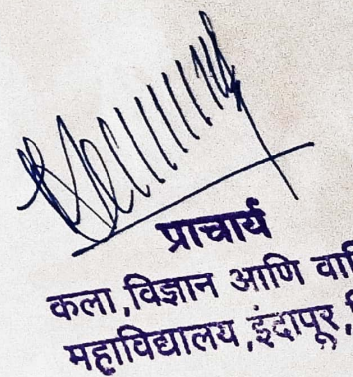 प्राचार्य
कला,विज्ञान आणि
महाविद्यालय,इंदापूर,